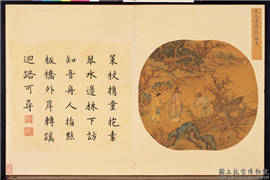 策杖攜童抱素
琴水邊林下訪
知音舟人指點
板橋外岸轉蹊
迴路可尋
國立故宮博物院